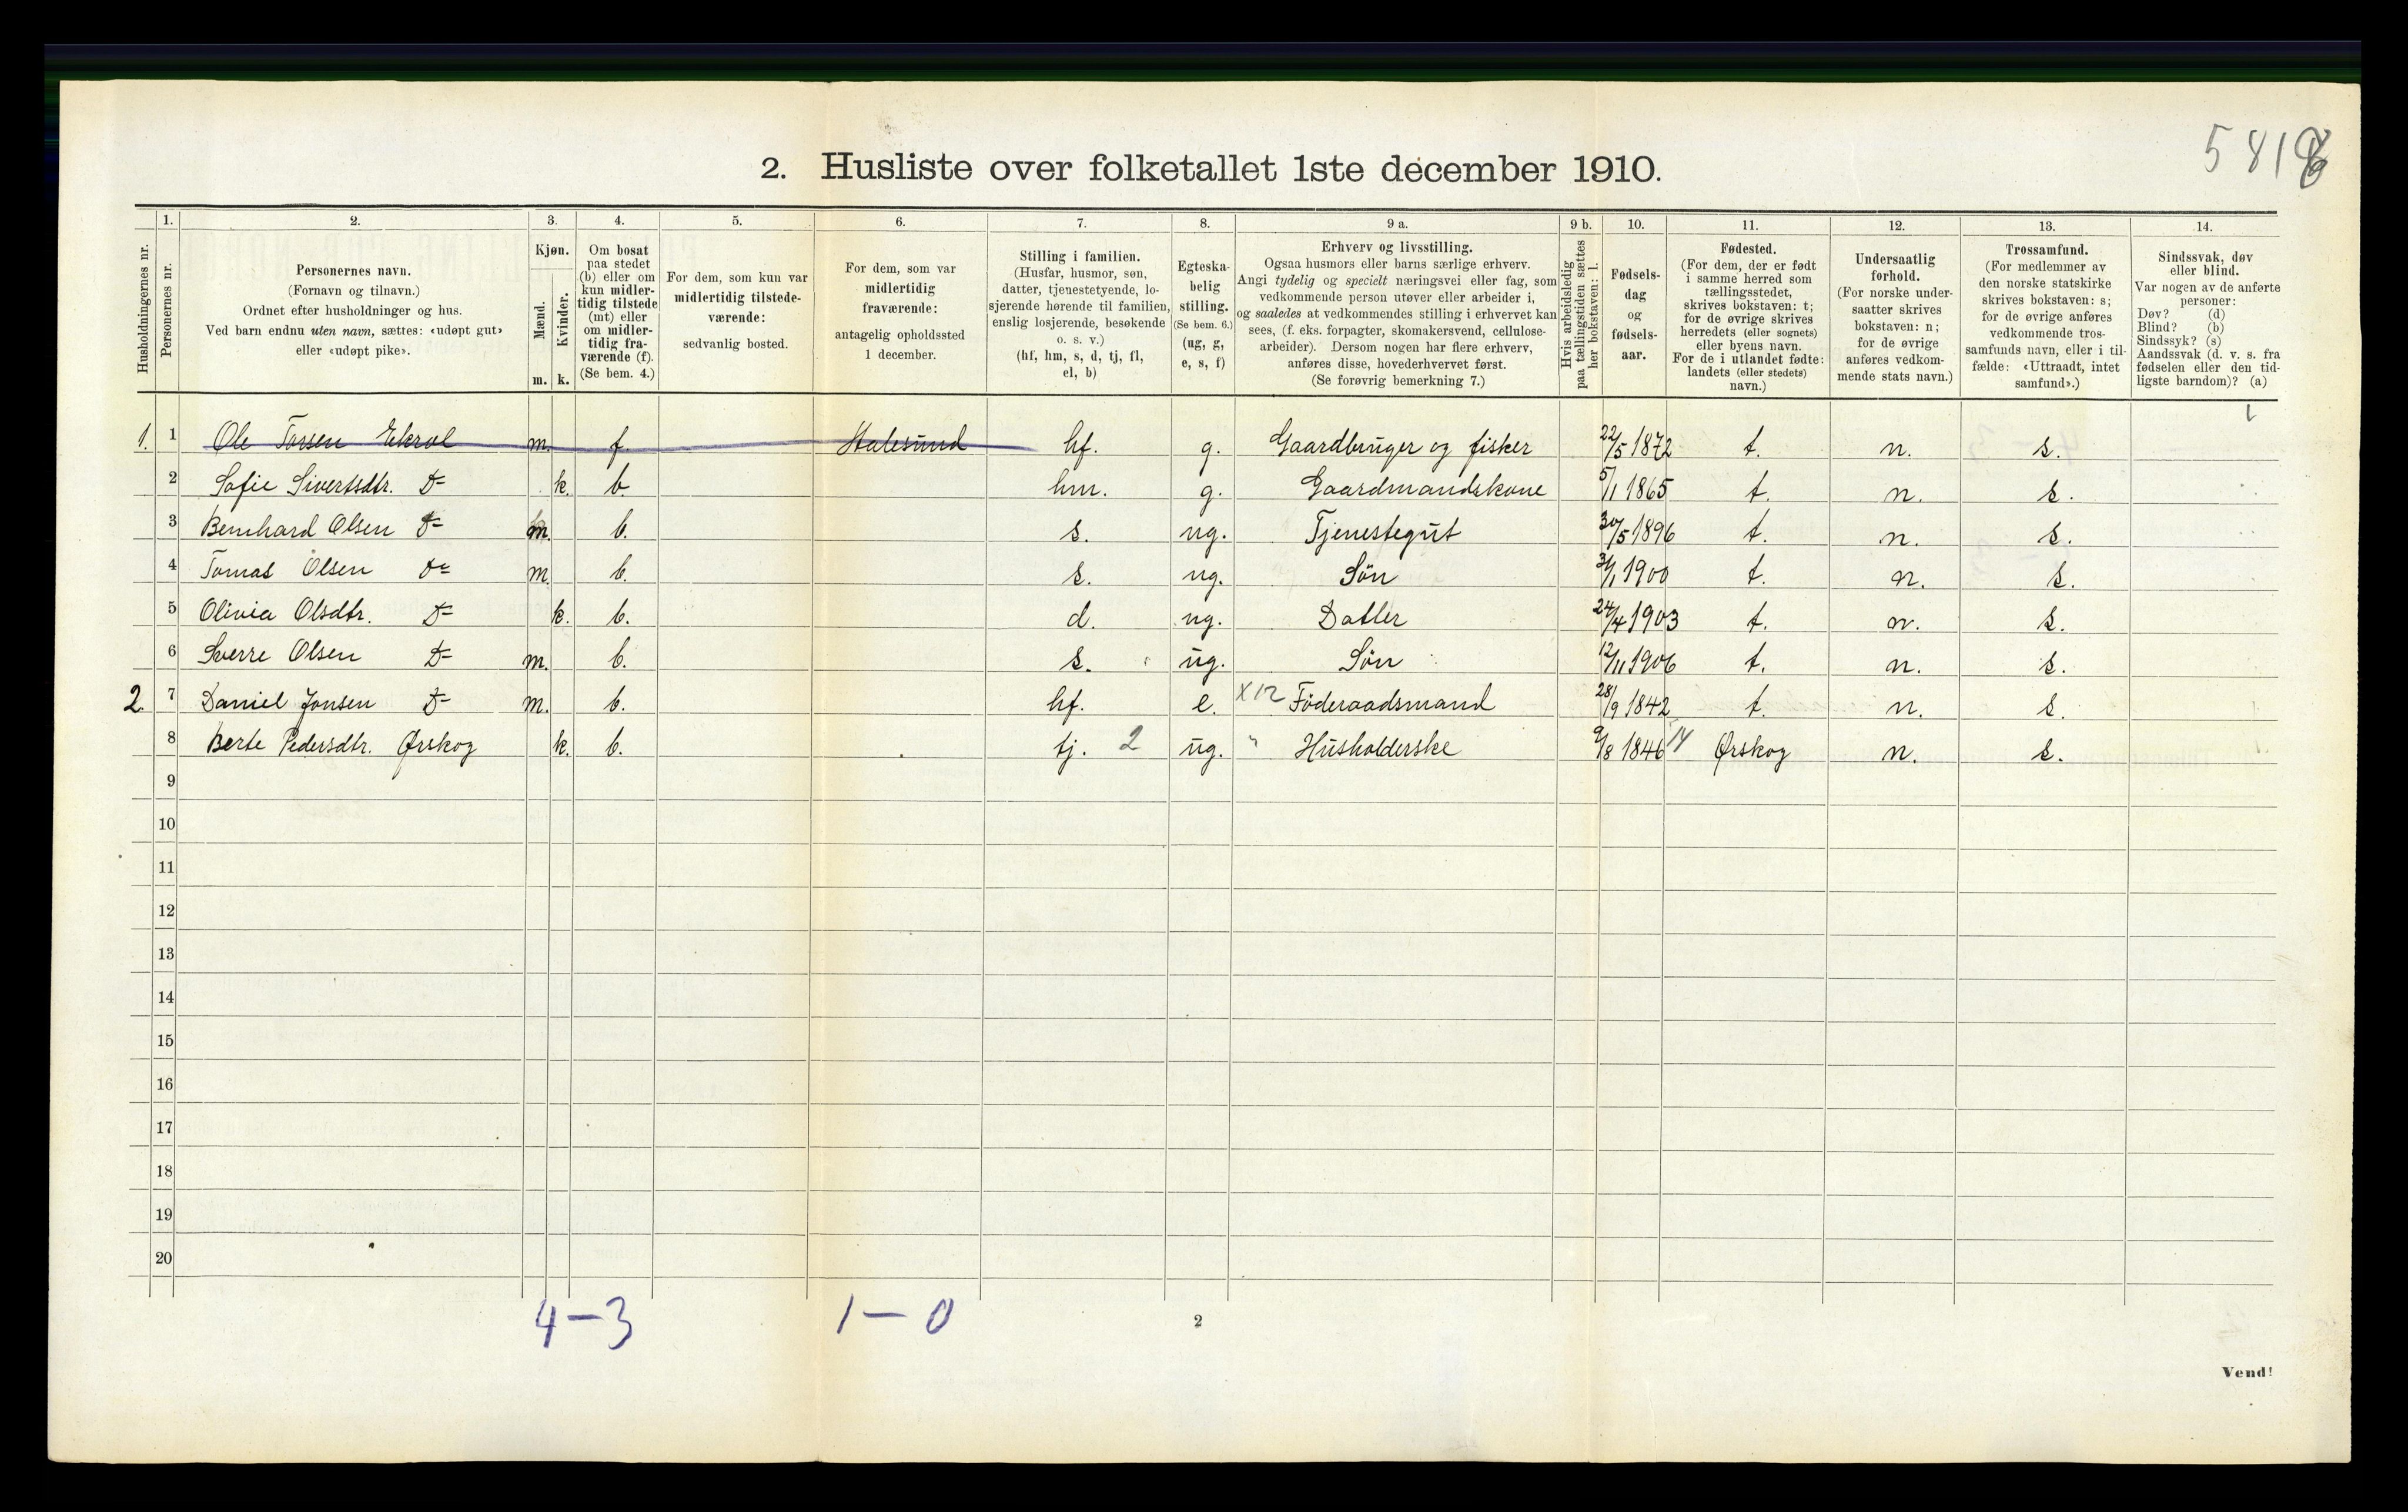 5818
2. Husliste over folketallet 1ste december 1910.
Husholdningernes nr.
1. Personernes nr.
2. Personernes navn. (Fornavn og tilnavn.) Ordnet efter husholdninger og hus. Ved barn endnu uten navn, sættes: «udøpt gut» eller «udøpt pike».
3. Kjøn. Mænd. m. Kvinder. k.
4. Om bosat paa stedet (b) eller om kun midlertidig tilstede (mt) eller om midlertidig fraværende (f). (Se bem. 4.)
5. For dem, som kun var midlertidig tilstedeværende: sedvanlig bosted.
6. For dem, som var midlertidig fraværende: antagelig opholdssted 1 december.
7. Stilling i familien. (Husfar, husmor, søn, datter, tjenestetyende, losjerende hørende til familien, enslig losjerende, besøkende o. s. v.) (hf, hm, s, d, tj, fl, el, b)
8. Egteskabelig stilling. (Se bem. 6.) (ug, g, e, s, f)
9 a. Erhverv og livsstilling. Ogsaa husmors eller barns særlige erhverv. Angi tydelig og specielt næringsvei eller fag, som vedkommende person utøver eller arbeider i, og saaledes at vedkommendes stilling i erhvervet kan sees, (f. eks. forpagter, skomakersvend, cellulosearbeider). Dersom nogen har flere erhverv, anføres disse, hovederhvervet først. (Se forøvrig bemerkning 7.)
9 b. Hvis arbeidsledig paa tællingstiden sættes her bokstaven: l.
10. Fødselsdag og fødselsaar.
11. Fødested. (For dem, der er født i samme herred som tællingsstedet, skrives bokstaven: t; for de øvrige skrives herredets (eller sognets) eller byens navn. For de i utlandet fødte: landets (eller stedets) navn.)
12. Undersaatlig forhold. (For norske undersaatter skrives bokstaven: n; for de øvrige anføres vedkommende stats navn.)
13. Trossamfund. (For medlemmer av den norske statskirke skrives bokstaven: s; for de øvrige anføres vedkommende trossamfunds navn, eller i tilfælde: «Uttraadt, intet samfund».)
14. Sindssvak, døv eller blind. Var nogen av de anførte personer: Døv? (d) Blind? (b) Sindssyk? (s) Aandssvak (d. v. s. fra fødselen eller den tidligste barndom)? (a)
1. 1 Ole Torsen Ekrol m. f. Aalesund hf. g. Gaardbruger og fisker 22/5 1872 t. n. s.
2 Sofie Sivertsdtr. D= k. b. hm. g. Gaardmandskone 5/1 1865 t. n. s.
3 Bernhard Olsen D= m. b. s. ug. Tjenestegut 30/5 1896 t. n. s.
4 Tomas Olsen D= m. b. s. ug. Søn 31/1 1900 t. n. s.
5 Olivia Olsdtr. D= k. b. d. ug. Datter 24/4 1903 t. n. s.
6 Sverre Olsen D= m. b. s. ug. Søn 12/11 1906 t. n. s.
2. 7 Daniel Jonsen D= m. b. hf. e. X12 Føderaadsmand 28/9 1842 t. n. s.
8 Berte Pedersdtr. Ørskog k. b. tj. 2 ug. " Husholderske 9/8 1846 14 Ørskog n. s.
9
10
11
12
13
14
15
16
17
18
19
20
4-3 1-0
2
Vend!